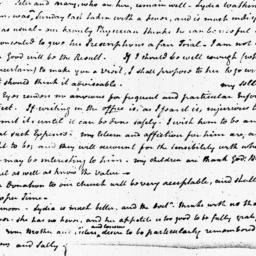 and Mary, who are here, remain well - Lydia Washin
was, Sunday last taken with a fever, and is much indis
as usual - our family Physician thinks he can be useful
consented to give his Prescriptions a fair Trial - I am not
Good will be the Result. If I should be well enough
uncertain) to make you a visit, I shall propose to her to go w
should think it adviseable - my self
Eyes render me anxious for frequent and particular Infor
If writing in the office is, as I fear it is, injurious to
omit it, until it can be done safely. I wish them to be an
such Expences: my esteem and affection for him are, an
to be; and they will account for the sensibility with wh
may be interesting to him - my children are thank God
as well as know the value -
Donation to our church will be very acceptable, and shall
proper Time -
noon - Lydia is much better, and the Doctr. thinks with no
she has no fever, and her appetite is too good to be fully grat
and cousins
Brother and sisters, desire to be particularly remembered
and Sally